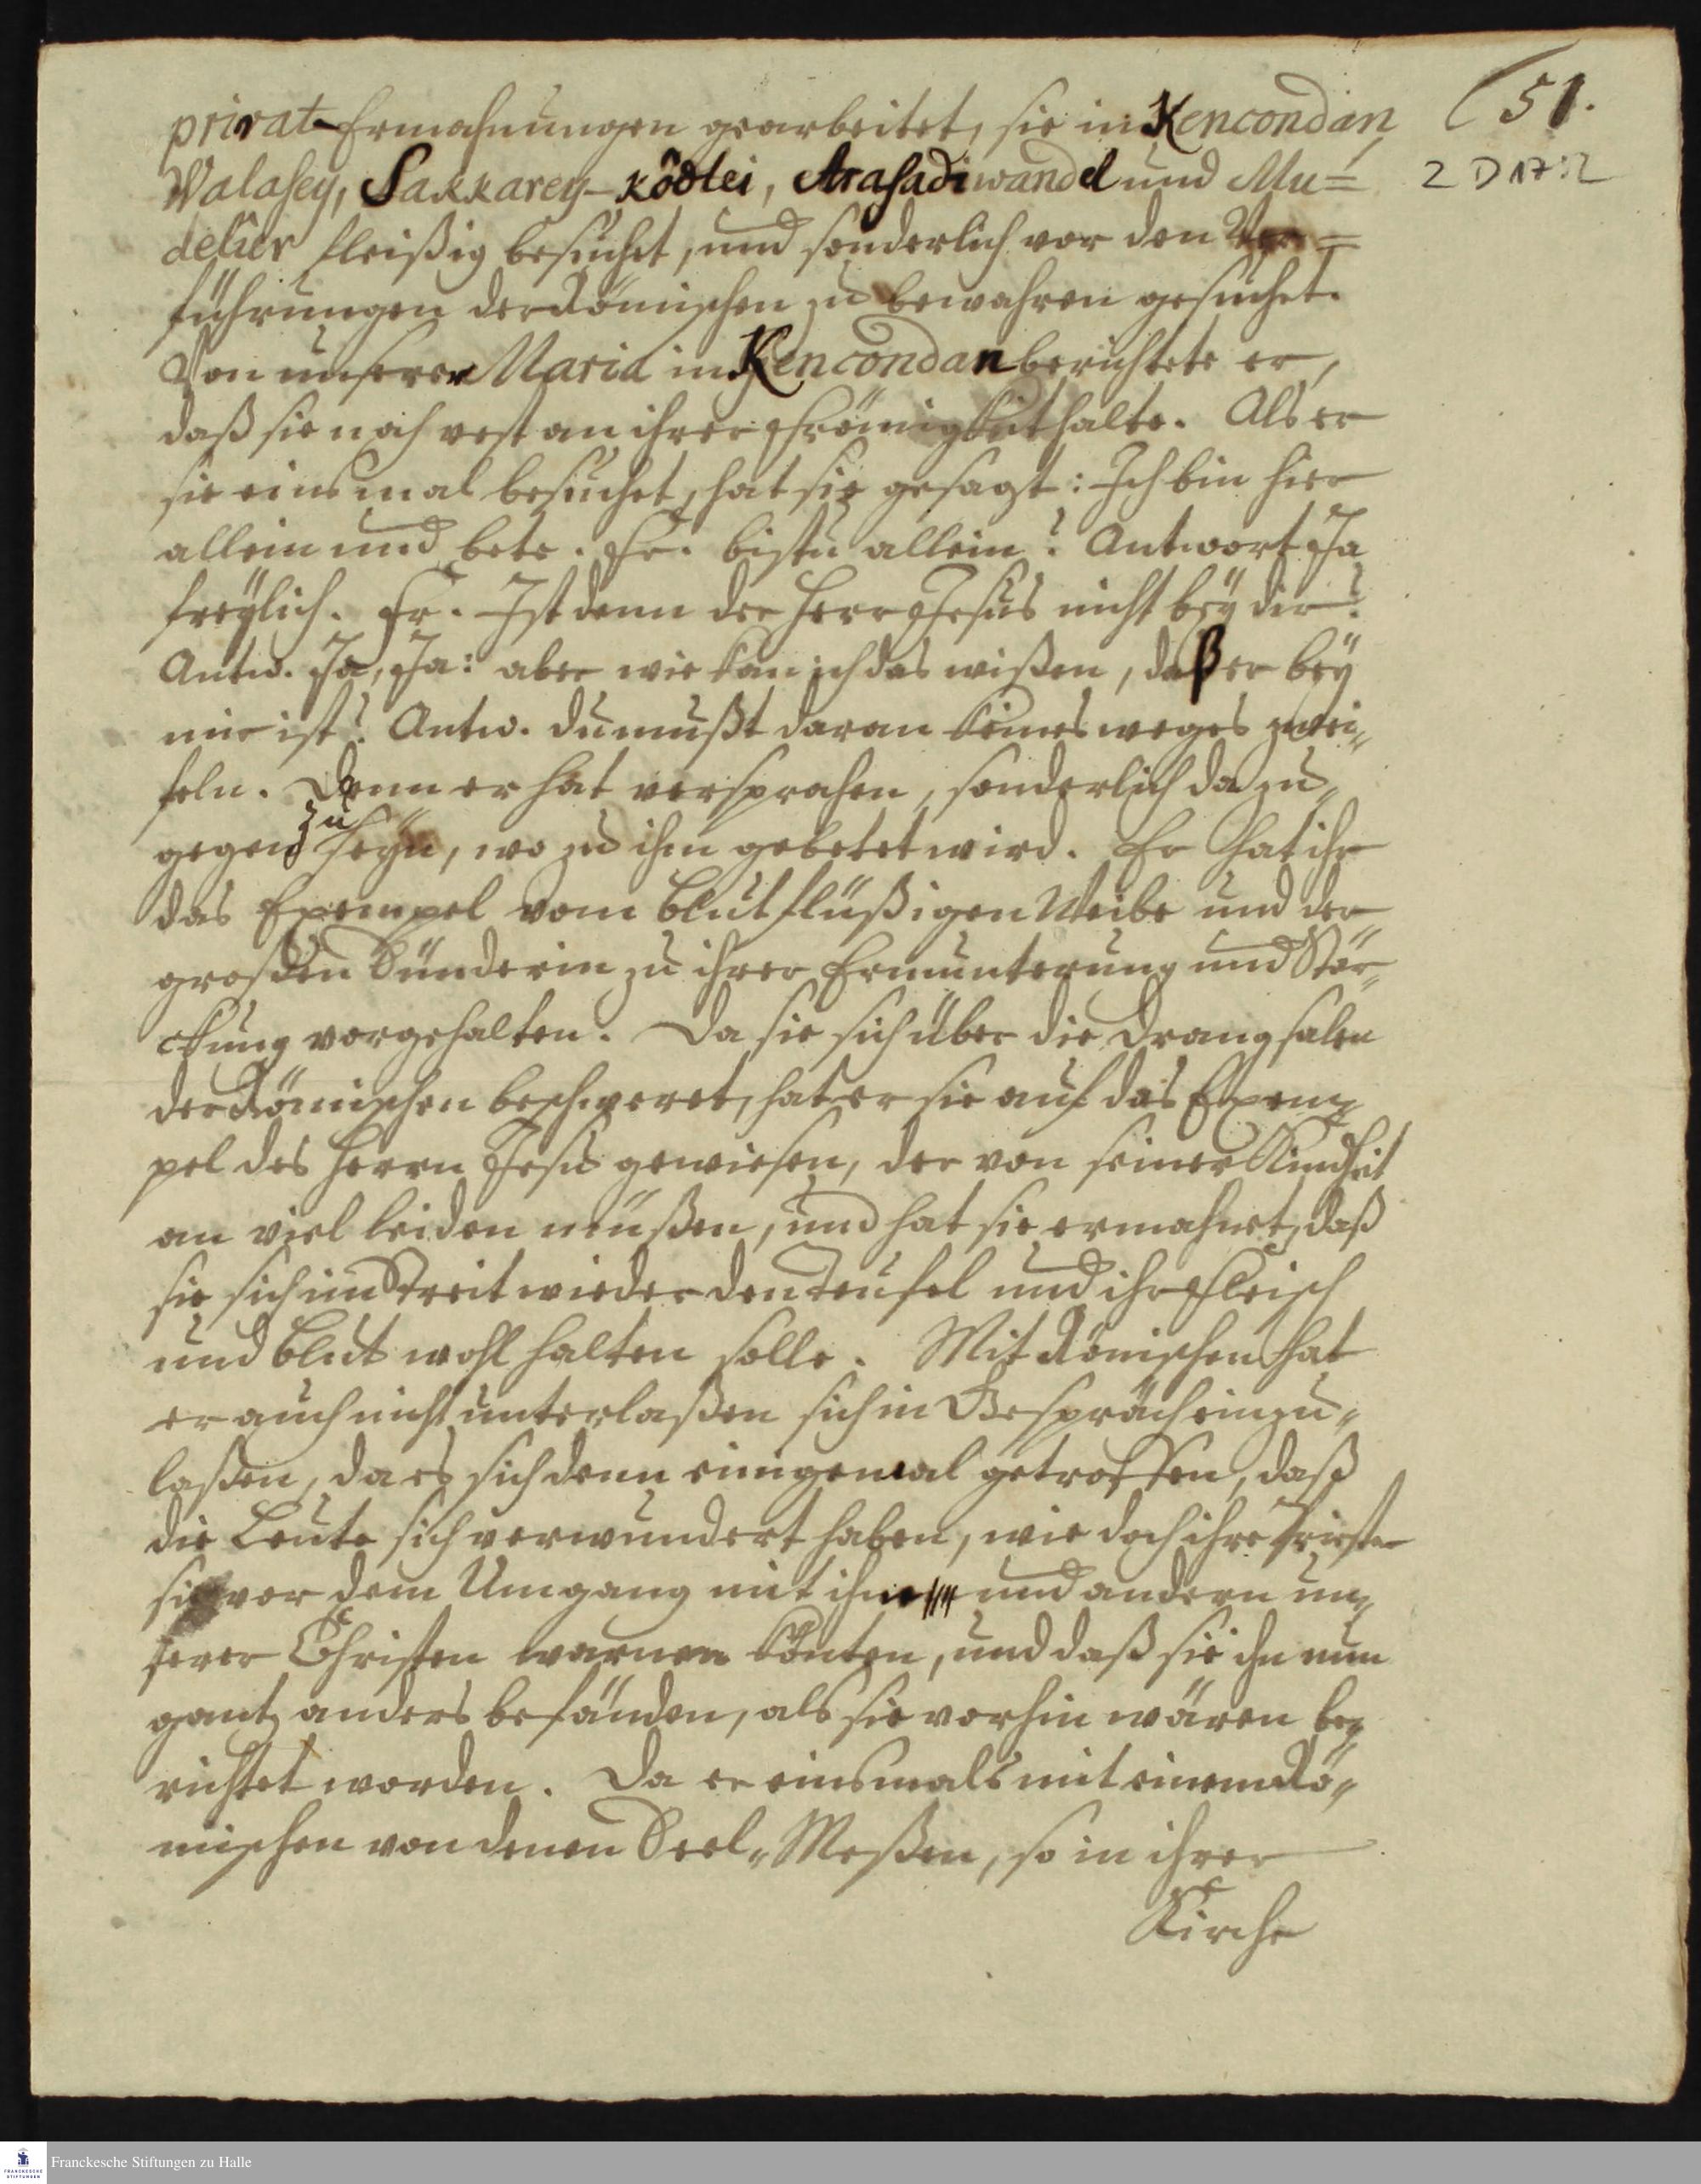 (51.
privat-Ermahnungen gearbeitet, sie in Kencondan,
2 D 17:2
Walasey, Sakkarey-kôdtei, Arasadiwandel und Mu=
delûr fleißig besuchet, und sonderlich vor den Ver=
führungen der Römischen zu bewahren gesuchet.
Von unserer Maria in Kencondan berichtete er,
daß sie noch vest an ihrer Frömigkeit halte. Als er
sie einsmal besuchet, hat sie gesagt: Ich bin hier
allein und bete. Fr. bistu allein? Antwort Ja
freÿlich. Fr. Ist denn der Herr Jesus nicht beÿ dir?
Antw. Ja, Ja: aber wie kan ich das wißen, daß er beÿ
mir ist? Antw. du mußt daran keines weges zwei„
feln. Denn er hat versprochen, sonderlich da zu„
gegen zu seÿn, wo zu ihm gebetet wird. Er hat ihr
das Exempel vom blutflüßigen Weibe und der
großen Sünderin zu ihrer Ermunterung und Stär„
ckung vorgehalten. Da sie sich über die Drangsalen
der Römischen beschweret, hat er sie auf das Exem„
pel des Herrn Jesu gewiesen, der von seiner Kindheit
an viel leiden müßen, und hat sie ermahnet, daß
sie sich im Streit wieder den Teufel und ihr Fleisch
und Blut wohl halten solle. Mit Römischen hat
er auch nicht unterlaßen sich in Gespräch einzu„
laßen, da es sich denn einigemal getroffen, daß
die Leute sich verwundert haben, wie doch ihre Priester
sie vor dem Umgang mit ihm und andern un„
serer Christen warnen könten, und daß sie ihn nun
gantz anders befänden, als sie vorhin wären be„
richtet worden. Da er einsmals mit einem Rö„
mischen von denen Seel„Meßen, so in ihrer
Kirche
Franckesche Stiftungen zu Halle